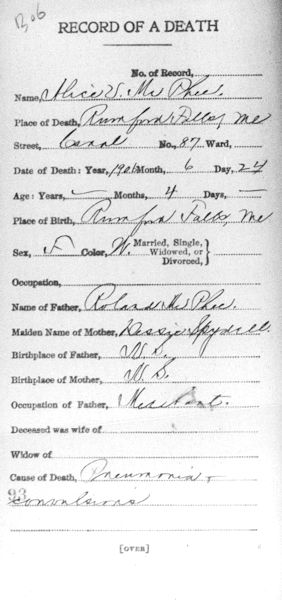 Bob
RECORD OF A DEATH
No. of Record,
Name, Alice V. Mc Phee.
Place of Death, Rumford Falls, Me
Street, Canal No., 87 Ward,
Date of Death: Year, 1901 Month, 6 Day, 24
Age: Years, — Months, 4 Days, —
Place of Birth, Rumford Falls, Me
Sex, F Color, W. Married, Single, Widowed, or Divorced,
Occupation,
Name of Father, Roland Mc Phee.
Maiden Name of Mother, Spydell.
Birthplace of Father,
Birthplace of Mother,
Occupation of Father,
Deceased was wife of
Widow of
Cause of Death, Pneumonia +
93
Convulsions
[OVER]